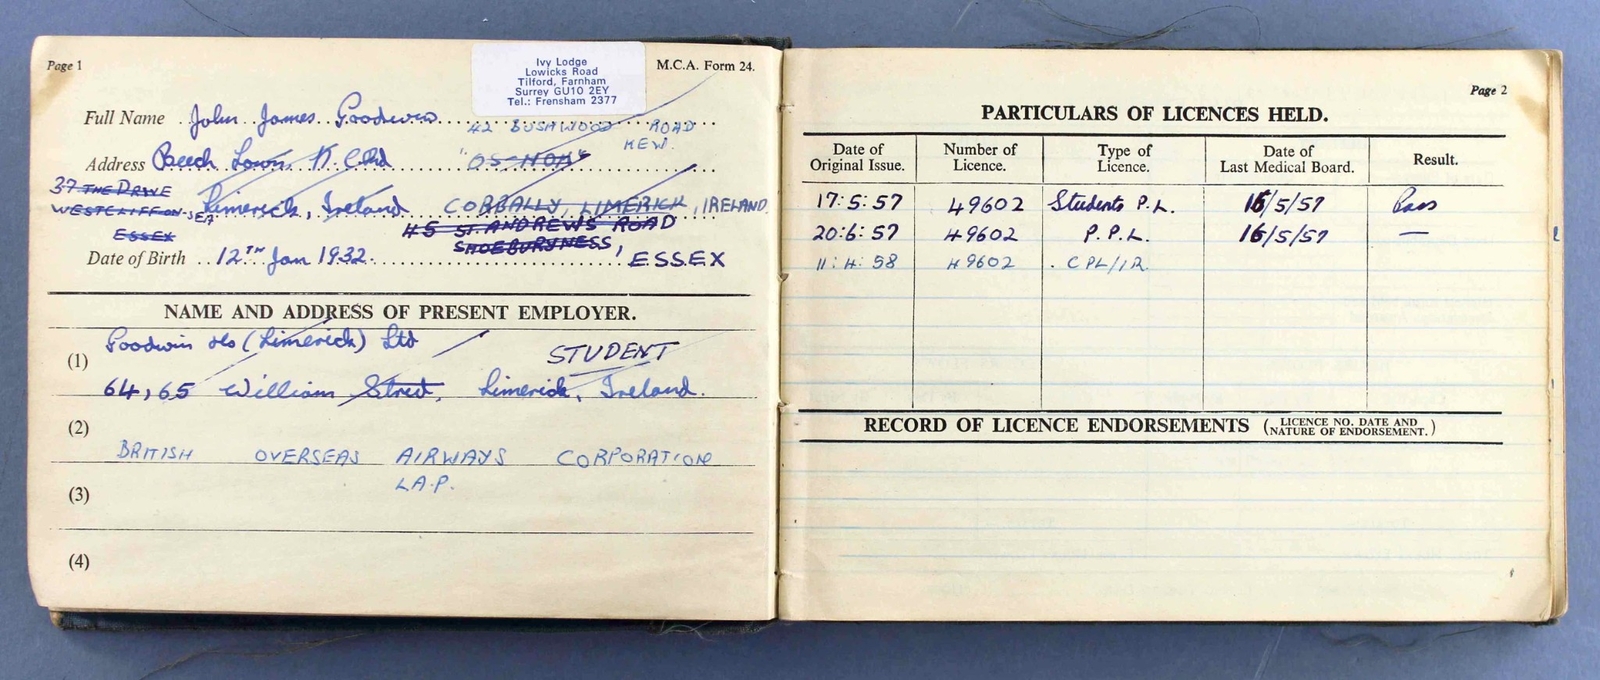 Page 1
Ivy Lodge
Lowicks Road
Tilford, Farnham
Surrey GU10 2EY
Tel.: Frensham 2377
M.C.A. Form 24.
Full Name John James Goodwin
42 BUSHWOOD ROAD
KEW.
Address Beech Lawn, N. C. Rd
37 THE DRIVE
WESTCLIFF-ON-SEA
ESSEX
Limerick, Ireland
CORBALLY, LIMERICK, IRELAND
45 ST. ANDREWS ROAD
SHOEBURYNESS,
ESSEX
Date of Birth 12TH Jan 1932.
NAME AND ADDRESS OF PRESENT EMPLOYER.
(1) Goodwin (Limerick) Ltd
STUDENT
64, 65 William Street, Limerick, Ireland.
(2)
BRITISH OVERSEAS AIRWAYS CORPORATION
L.A.P.
(3)
(4)
Page 2
PARTICULARS OF LICENCES HELD.
Date of Original Issue. Number of Licence. Type of Licence. Date of Last Medical Board. Result.
17:5:57 49602 Students P.L. 16/5/57 Pass
20:6:57 49602 P.P.L. 16/5/57 —
11:4:58 49602 CPL/IR.
RECORD OF LICENCE ENDORSEMENTS (LICENCE NO. DATE AND NATURE OF ENDORSEMENT.)